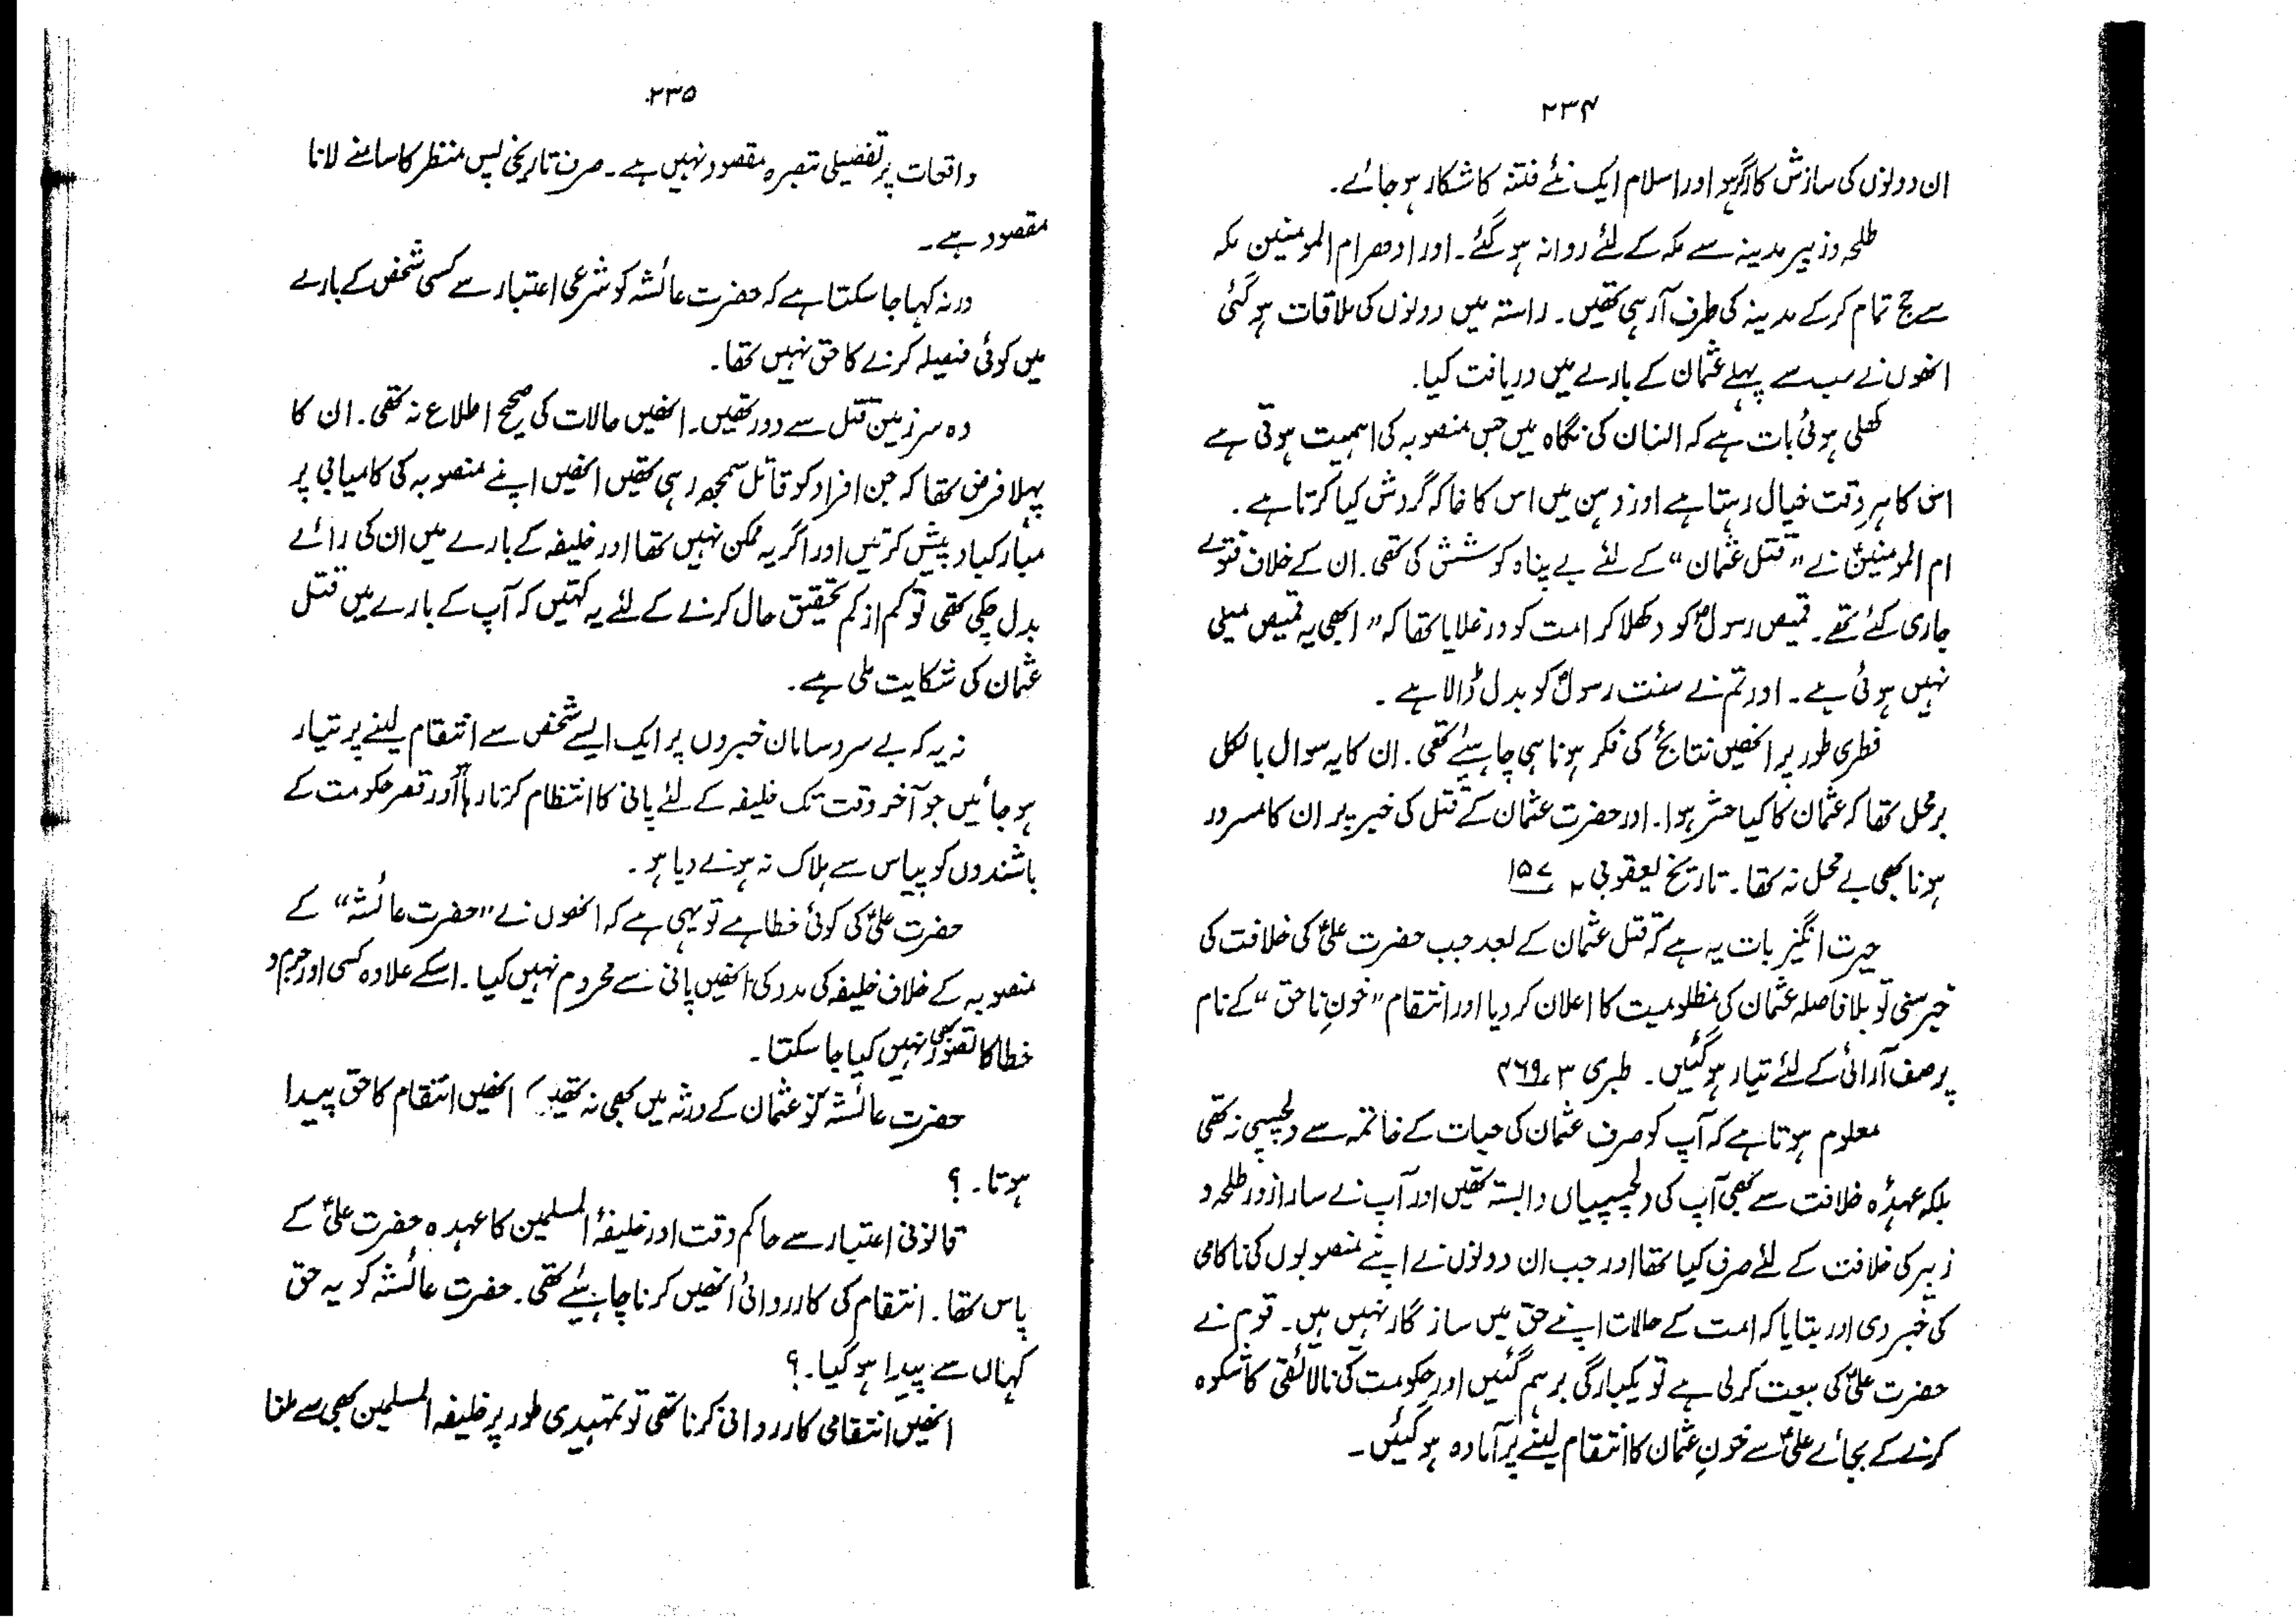 ۲۳۴
ان دونوں کی سازش کارگر ہو اور اسلام ایک نئے فتنہ کا شکار ہو جائے۔
طلحہ و زبیر مدینہ سے مکہ کے لئے روانہ ہو گئے۔ اور ادھر ام المومنین مکہ
سے حج تمام کرکے مدینہ کی طرف آرہی تھیں۔ راستہ میں دونوں کی ملاقات ہو گئی
انھوں نے سب سے پہلے عثمان کے بارے میں دریافت کیا۔
کھلی ہوئی بات ہے کہ انسان کی نگاہ میں جس منصوبہ کی اہمیت ہوتی ہے
اس کا ہر وقت خیال رہتا ہے اور ذہن میں اس کا خاکہ گردش کیا کرتا ہے۔
ام المومنینؑ نے "قتل عثمان" کے لئے بے پناہ کوشش کی تھی۔ ان کے خلاف فتوے
جاری کئے تھے۔ قمیص رسولؐ کو دکھلا کر امت کو ورغلایا تھا کہ "ابھی یہ قمیص میلی
نہیں ہوئی ہے۔ اور تم نے سنت رسولؐ کو بدل ڈالا ہے۔
فطری طور پر انھیں نتائج کی فکر ہونا ہی چاہیئے تھی۔ ان کا یہ سوال بالکل
برمحل تھا کہ عثمان کا کیا حشر ہوا۔ اور حضرت عثمان کے قتل کی خبر پر ان کا مسرور
ہونا بھی بے محل نہ تھا۔ تاریخ یعقوبی ۲ ۱۵۷
حیرت انگیز بات یہ ہے کہ قتل عثمان کے بعد جب حضرت علیؑ کی خلافت کی
خبر سنی تو بلا فاصلہ عثمان کی مظلومیت کا اعلان کر دیا اور انتقام "خونِ ناحق" کے نام
پر صف آرائی کے لئے تیار ہو گئیں۔ طبری ۳ ۴۶۹
معلوم ہوتا ہے کہ آپ کو صرف عثمان کی حیات کے خاتمہ سے دلچسپی نہ تھی
بلکہ عہدہ خلافت سے بھی آپ کی دلچسپیاں وابستہ تھیں اور آپ نے سارا زور طلحہ و
زبیر کی خلافت کے لئے صرف کیا تھا اور جب ان دونوں نے اپنے منصوبوں کی ناکامی
کی خبر دی اور بتایا کہ امت کے حالات اپنے حق میں سازگار نہیں ہیں۔ قوم نے
حضرت علیؑ کی بیعت کر لی ہے تو یکبارگی برہم گئیں اور حکومت کی نالائقی کا شکوہ
کرنے کے بجائے علیؑ سے خونِ عثمان کا انتقام لینے پر آمادہ ہو گئیں۔
۲۳۵
واقعات پر تفصیلی تبصرہ مقصود نہیں ہے۔ صرف تاریخی پس منظر کا سامنے لانا
مقصود ہے۔
ورنہ کہا جا سکتا ہے کہ حضرت عائشہ کو شرعی اعتبار سے کسی شخص کے بارے
میں کوئی فیصلہ کرنے کا حق نہیں تھا۔
وہ سرزمین قتل سے دور تھیں۔ انھیں حالات کی صحیح اطلاع نہ تھی۔ ان کا
پہلا فرض تھا کہ جن افراد کو قاتل سمجھ رہی تھیں انھیں اپنے منصوبہ کی کامیابی پر
مبارکباد پیش کرتیں اور اگر یہ ممکن نہیں تھا اور خلیفہ کے بارے میں ان کی رائے
بدل چکی تھی تو کم از کم تحقیق حال کرنے کے لئے یہ کہتیں کہ آپ کے بارے میں قتل
عثمان کی شکایت ملی ہے۔
نہ یہ کہ بے سروسامان خبروں پر ایک ایسے شخص سے انتقام لینے پر تیار
ہو جائیں جو آخر وقت تک خلیفہ کے لئے پانی کا انتظام کرتا رہا ہو اور قصر حکومت کے
باشندوں کو پیاس سے ہلاک نہ ہونے دیا ہو۔
حضرت علیؑ کی کوئی خطا ہے تو یہی ہے کہ انھوں نے "حضرت عائشہ" کے
منصوبہ کے خلاف خلیفہ کی مدد کی انھیں پانی سے محروم نہیں کیا۔ اسکے علاوہ کسی اور جرم و
خطا کا تصور بھی نہیں کیا جا سکتا۔
حضرت عائشہ تو عثمان کے ورثہ میں بھی نہ تھیں کہ انھیں انتقام کا حق پیدا
ہوتا۔ ؟
قانونی اعتبار سے حاکم وقت اور خلیفۃ المسلمین کا عہدہ حضرت علیؑ کے
پاس تھا۔ انتقام کی کارروائی انھیں کرنا چاہیئے تھی۔ حضرت عائشہ کو یہ حق
کہاں سے پیدا ہو گیا۔ ؟
انھیں انتقامی کارروائی کرنا تھی تو تمہیدی طور پر خلیفۃ المسلمین بھی سے ملنا